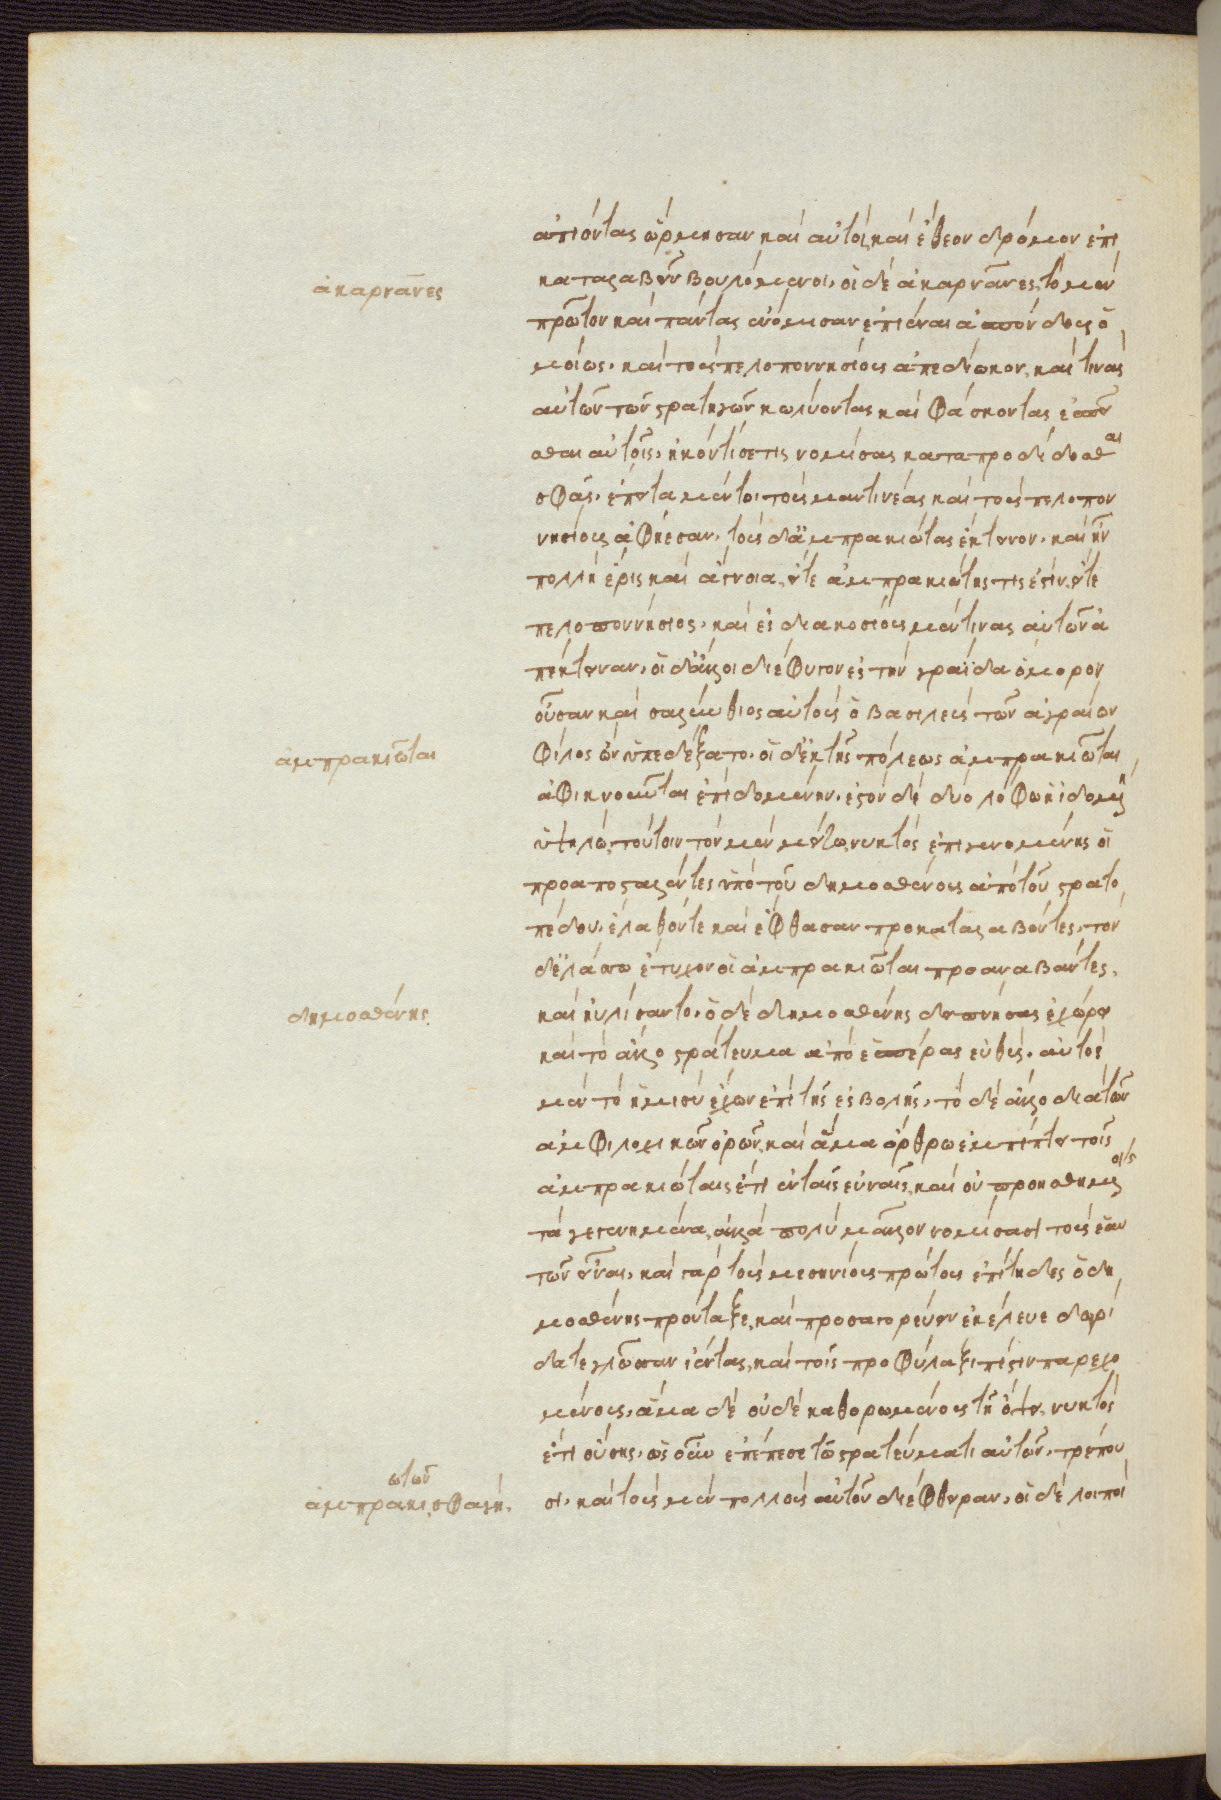 ἀπιόντας ὥρμησαν καὶ αὐτοί, καὶ ἔθεον δρόμον ἐπι
καταλαβεῖν βουλόμενοι. οἱ δὲ ἀκαρνᾶνες, τὸ μὲν
ἀκαρνᾶνες
πρῶτον καὶ πάντας ἐνόμισαν ἐπιέναι ἀσπόνδους ὁ
μοίως. καὶ τοὺς πελοποννησίους ἀπεδίωκον, καὶ τινὰς
αὐτῶν τῶν στρατηγῶν κωλύοντας καὶ φάσκοντας ἐσπεῖ
σθαι αὐτοῖς, ἠκόντισέ τις νομίσας καταπροδίδοσθαι
σφᾶς. ἔπειτα μέντοι τοὺς μαντινέας καὶ τοὺς πελοπον
νησίους ἀφήεσαν. τοὺς δ' ἀμπρακιώτας ἔκτεινον. καὶ ἦν
πολλὴ ἔρις καὶ ἄγνοια, εἴτε ἀμπρακιώτης τίς ἐστιν, εἴτε
πελοποννήσιος. καὶ ἐς διακοσίους μέν τινας αὐτῶν ἀ
πέκτειναν. οἱ δ' ἄλλοι διέφυγον ἐς τὴν ἀγραΐδα ὅμορον
οὖσαν καὶ σαλύνθιος αὐτοὺς ὁ βασιλεὺς τῶν ἀγραίων
φίλος ὢν ὑπεδέξατο. οἱ δ' ἐκ τῆς πόλεως ἀμπρακιῶται
ἀμπρακιῶται
ἀφικνοῦνται ἐπὶ ἰδομένην. ἐστὸν δὲ δύο λόφω ἡ ἰδομένη
ὑψηλώ. τούτοιν τὸν μὲν μείζω, νυκτὸς ἐπιγενομένης οἱ
προαποσταλέντες ὑπὸ τοῦ δημοσθένους ἀπὸ τοῦ στρατο
πέδου, ἔλαθόν τε καὶ ἔφθασαν προκαταλαβόντες. τὸν
δ' ἐλάσσω ἔτυχον οἱ ἀμπρακιῶται προαναβάντες,
καὶ ηὐλίσαντο. ὁ δὲ δημοσθένης δειπνήσας ἐχώρει
δημοσθένης
καὶ τὸ ἄλλο στράτευμα ἀπὸ ἑσπέρας εὐθύς. αὐτὸς
μὲν τὸ ἥμισυ ἔχων ἐπὶ τῆς ἐσβολῆς, τὸ δὲ ἄλλο διὰ τῶν
ἀμφιλοχικῶν ὀρῶν. καὶ ἅμα ὄρθρῳ ἐμπίπτει τοῖς
ἀμπρακιώταις ἔτι ἐν ταῖς εὐναῖς, καὶ οὐ προησθημένοις
τὰ γεγενημένα, ἀλλὰ πολὺ μᾶλλον νομίσασι τοὺς ἑαυ
τῶν εἶναι. καὶ γὰρ τοὺς μεσηνίους πρώτους ἐπίτηδες ὁ δη
μοσθένης προύταξε, καὶ προσαγορεύειν ἐκέλευε δωρί
δα τε γλῶσσαν ἱέντας, καὶ τοῖς προφύλαξι πίστιν παρεχο
μένους, ἅμα δὲ οὐδὲ καθορωμένους τῇ ὄψει, νυκτὸς
ἔτι οὔσης. ὡς οὖν ἐπέπεσε τῷ στρατεύματι αὐτῶν, τρέπου
σι. καὶ τοὺς μὲν πολλοὺς αὐτοῦ διέφθειραν. οἱ δὲ λοιποὶ
ἀμπρακιωτῶν σφαγή.